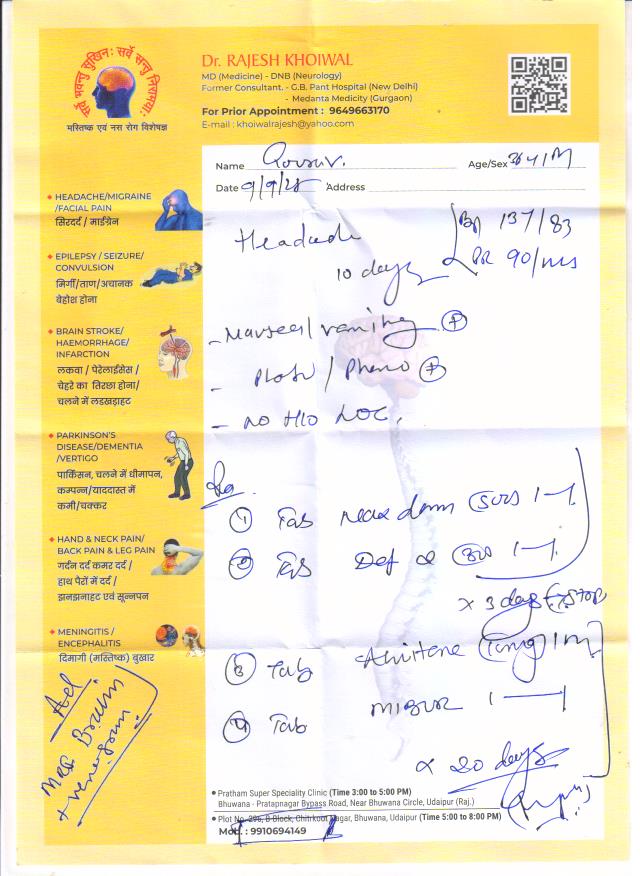 सर्वे भवन्तु सुखिनः सर्वे सन्तु निरामयाः
मस्तिष्क एवं नस रोग विशेषज्ञ
Dr. RAJESH KHOIWAL
MD (Medicine) - DNB (Neurology)
Former Consultant. - G.B. Pant Hospital (New Delhi)
- Medanta Medicity (Gurgaon)
For Prior Appointment : 9649663170
E-mail : khoiwalrajesh@yahoo.com
Name Age/Sex
Date 9/9/25 Address
HEADACHE/MIGRAINE
/FACIAL PAIN
सिरदर्द / माईग्रेन
EPILEPSY / SEIZURE/
CONVULSION
मिर्गी/ताण/अचानक
बेहोश होना
BRAIN STROKE/
HAEMORRHAGE/
INFARCTION
लकवा / पेरेलाईसेस /
चेहरे का तिरछा होना/
चलने में लडखड़ाहट
PARKINSON'S
DISEASE/DEMENTIA
/VERTIGO
पार्किंसन, चलने में धीमापन,
कम्पन्न/याददास्त में
कमी/चक्कर
HAND & NECK PAIN/
BACK PAIN & LEG PAIN
गर्दन दर्द कमर दर्द /
हाथ पैरों में दर्द /
झनझनाहट एवं सून्नपन
MENINGITIS /
ENCEPHALITIS
दिमागी (मस्तिष्क) बुखार
BP 137/83
Headache
PR 90/
10 days
- Nausea/vomiting +
- Photo / Phono +
- NO H/O LOC.
① Tab
② Tab
x 3 days STOP
③ Tab
④ Tab
x 20 days
Adv
MRI Brain
+ venogram
Pratham Super Speciality Clinic (Time 3:00 to 5:00 PM)
Bhuwana - Pratapnagar Bypass Road, Near Bhuwana Circle, Udaipur (Raj.)
Plot No. 296, B Block, Chitrkoot Nagar, Bhuwana, Udaipur (Time 5:00 to 8:00 PM)
Mob. : 9910694149